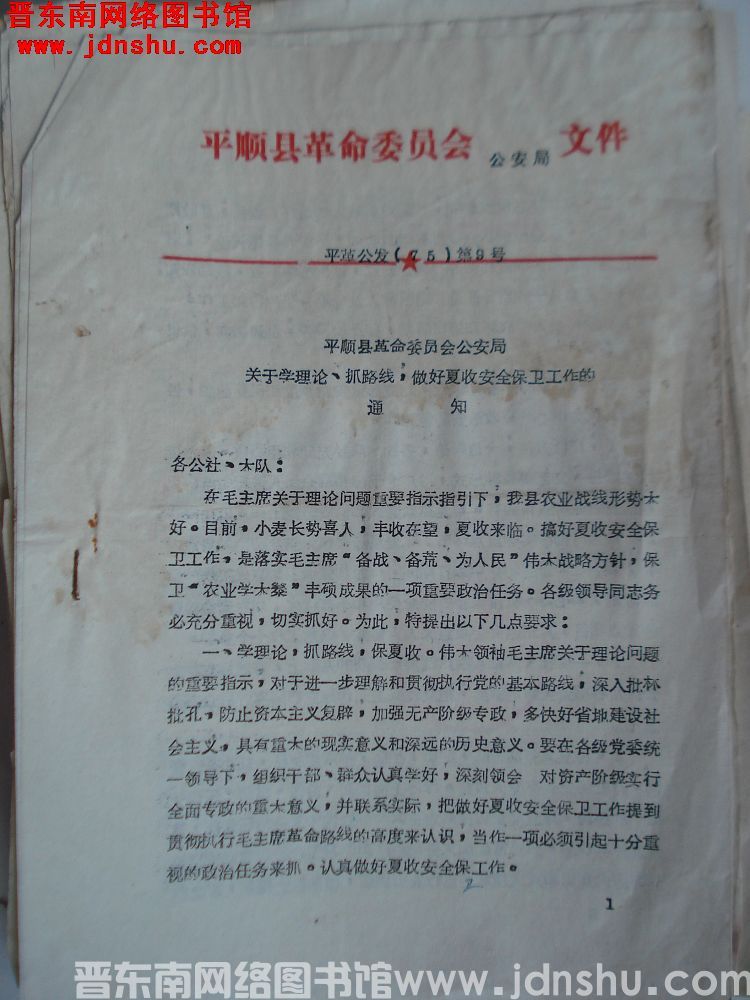 晋东南网络图书馆
www.jdnshu.com
平顺县革命委员会公安局文件
平革公发(75)第9号
平顺县革命委员会公安局
关于学理论、抓路线,做好夏收安全保卫工作的
通 知
各公社、大队:
在毛主席关于理论问题重要指示指引下,我县农业战线形势大
好。目前,小麦长势喜人,丰收在望,夏收来临。搞好夏收安全保
卫工作,是落实毛主席“备战、备荒、为人民”伟大战略方针,保
卫“农业学大寨”丰硕成果的一项重要政治任务。各级领导同志务
必充分重视,切实抓好。为此,特提出以下几点要求:
一、学理论,抓路线,保夏收。伟大领袖毛主席关于理论问题
的重要指示,对于进一步理解和贯彻执行党的基本路线,深入批林
批孔,防止资本主义复辟,加强无产阶级专政,多快好省地建设社
会主义,具有重大的现实意义和深远的历史意义。要在各级党委统
一领导下,组织干部、群众认真学好,深刻领会 对资产阶级实行
全面专政的重大意义,并联系实际,把做好夏收安全保卫工作提到
贯彻执行毛主席革命路线的高度来认识,当作一项必须引起十分重
视的政治任务来抓。认真做好夏收安全保工作。
2
1
晋东南网络图书馆www.jdnshu.com